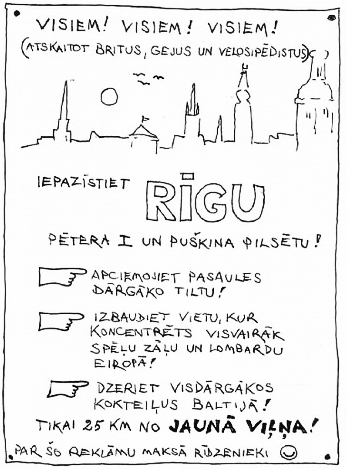 VISIEM! VISIEM! VISIEM!
(ATSKAITOT BRITUS, GEJUS UN VELOSIPĒDISTUS)
IEPAZĪSTIET
RĪGU
PĒTERA I UN PUŠKINA PILSĒTU!
APCIEMOJIET PASAULES
DĀRGĀKO TILTU!
IZBAUDIET VIETU, KUR
KONCENTRĒTS VISVAIRĀK
SPĒĻU ZĀĻU UN LOMBARDU
EIROPĀ!
DZERIET VISDĀRGĀKOS
KOKTEIĻUS BALTIJĀ!
TIKAI 25 KM NO JAUNĀ VIĻŅA!
PAR ŠO REKLĀMU MAKSĀ RĪDZENIEKI